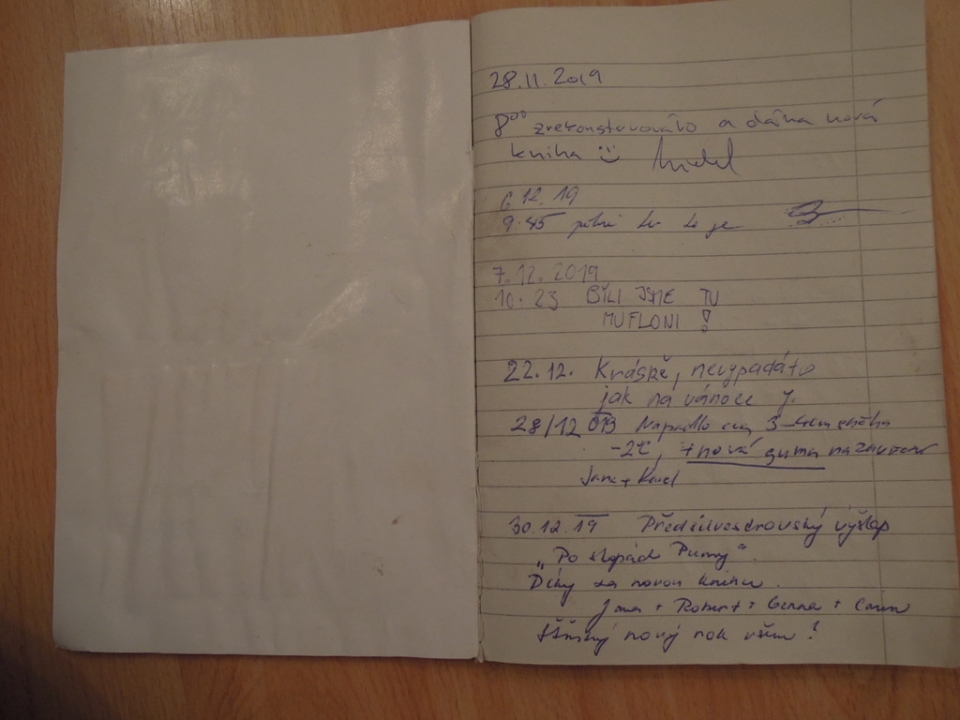 28.11.2019
8⁰⁰ zrekonstruováno a dána nová
kniha :)
6.12.19
9.45
7.12.2019
10.23 BÍLÍ JSME TU
MUFLONI!
22.12. Krásně, nevypadáto
jak na vánoce J.
28/12 019 Napadlo cca 3-4cm sněhu
-2°C, + nová guma
Jana + Karel
30.12.19 Předsilvestrovský výšlap
„Po stopách Pumy“.
Díky za novou knihu.
Jana + Robert +
Šťastný nový rok všem!